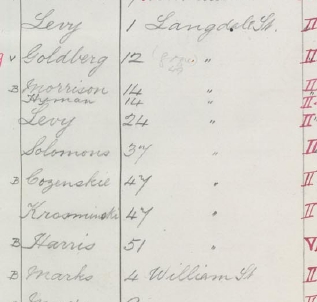 Levy 1 Langdale St. II
v Goldberg 12 " " II
B Morrison 14 " II
Hyman 14 " II
Levy 24 " II
Solomons 37 " II
B Cozenskie 47 " II
Krasminski 47 " II
B Harris 51 " V
B Marks 4 William St II